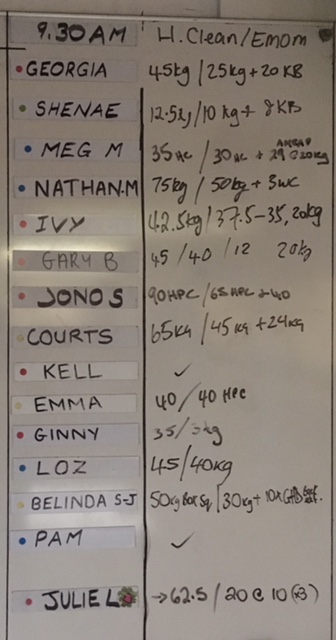 9.30AM H. Clean/Emom
GEORGIA 45kg / 25kg + 20 KB
SHENAE 12.5kg / 10 kg + 8KB
MEG M 35HC / 30HC + 29 @ 20kg AMRAP
NATHAN.M 75kg / 50kg + 3WC
IVY 42.5kg / 37.5-35, 20kg
GARY B 45 / 40 / 12 20kg
JONO S 90HPC / 65HPC + 40
COURTS 65kg / 45kg + 24kg
KELL ✓
EMMA 40 / 40 HPC
GINNY 35 /
LOZ 45/40kg
BELINDA S-J 50kg Box Sq / 30kg + 10K
PAM ✓
JULIE L → 62.5 / 20 @ 10 (x3)